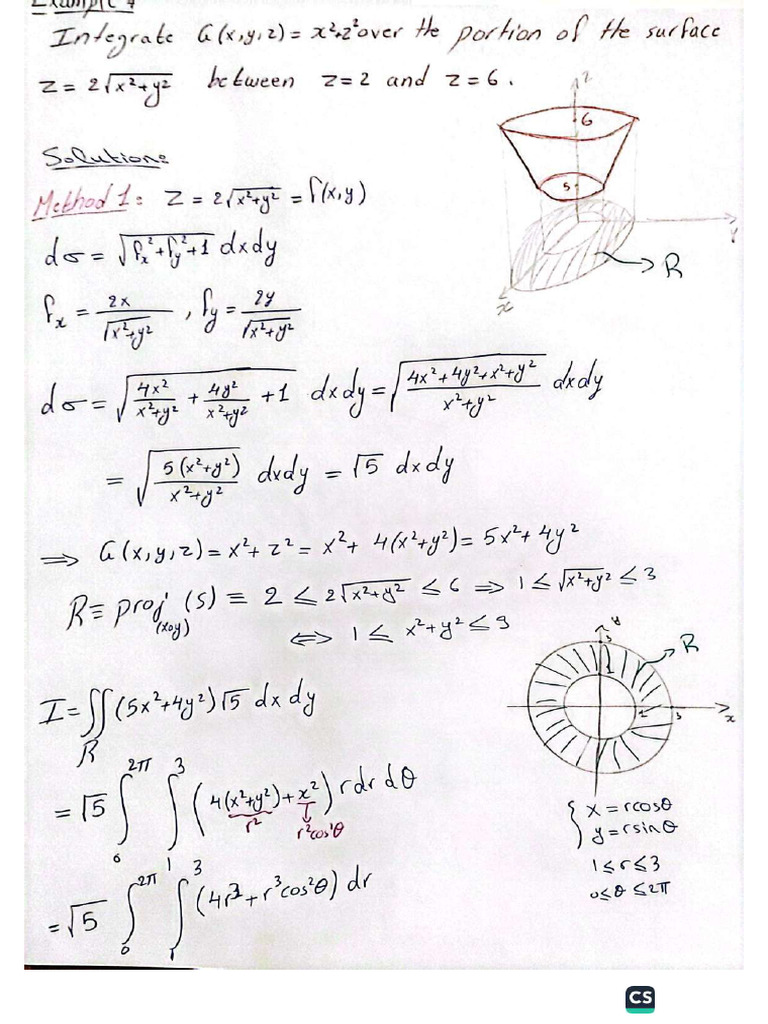 Example 4
Integrate G(x,y,z) = x²+z² over the portion of the surface
z = 2√(x²+y²) between z=2 and z=6.
z
6
y
R
x
Solution:
Method 1: z = 2√(x²+y²) = f(x,y)
dσ = √(fx² + fy² + 1) dxdy
fx = 2x/√(x²+y²) , fy = 2y/√(x²+y²)
dσ = √(4x²/(x²+y²) + 4y²/(x²+y²) + 1) dxdy = √((4x²+4y²+x²+y²)/(x²+y²)) dxdy
= √(5(x²+y²)/(x²+y²)) dxdy = √5 dxdy
⇒ G(x,y,z) = x²+z² = x²+ 4(x²+y²) = 5x²+4y²
R ≡ proj (S) ≡ 2 ≤ 2√(x²+y²) ≤ 6 ⇒ 1 ≤ √(x²+y²) ≤ 3
(xoy)
⇔ 1 ≤ x²+y² ≤ 9
y
3
R
1
1
3
x
I = ∬R (5x²+4y²) √5 dxdy
= √5 ∫₀^2π ∫₁³ (4(x²+y²) + x²) rdr dθ
r² r²cos²θ
{ x = rcosθ
y = rsinθ
1 ≤ r ≤ 3
0 ≤ θ ≤ 2π
= √5 ∫₀^2π ∫₁³ (4r³ + r³cos²θ) dr
CS